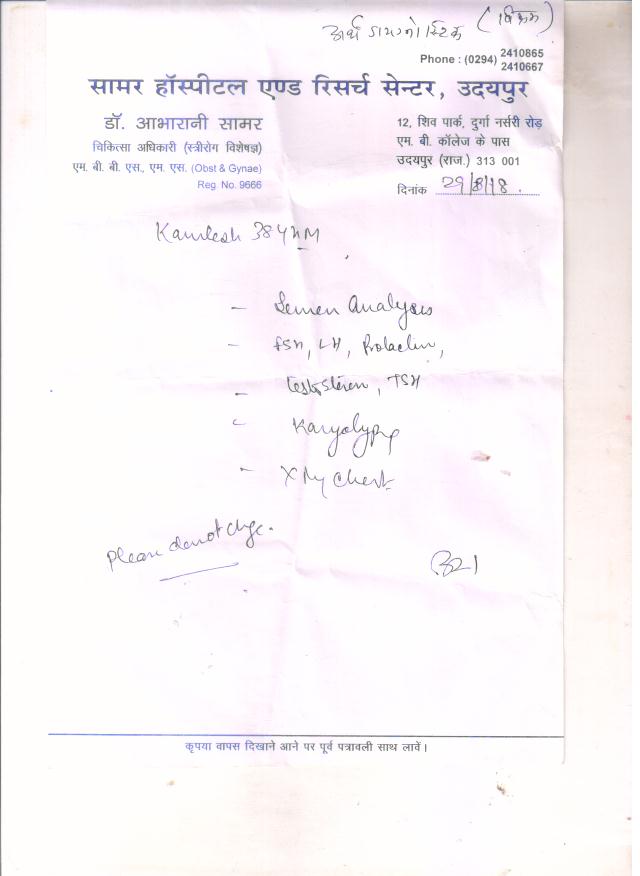 अर्थ डायग्नोस्टिक (विक्रम)
Phone : (0294) 2410865
2410667
सामर हॉस्पीटल एण्ड रिसर्च सेन्टर, उदयपुर
डॉ. आभारानी सामर
चिकित्सा अधिकारी (स्त्रीरोग विशेषज्ञ)
एम. बी. बी. एस., एम. एस. (Obst & Gynae)
Reg. No. 9666
12, शिव पार्क, दुर्गा नर्सरी रोड़
एम. बी. कॉलेज के पास
उदयपुर (राज.) 313 001
दिनांक 29/8/18
Kamlesh 38 yr M
- Semen Analysis
- FSH, LH, Prolactin,
- testosteron, TSH
- Karyotype
- X Ray Chest
Please donot chge.
कृपया वापस दिखाने आने पर पूर्व पत्रावली साथ लावें।